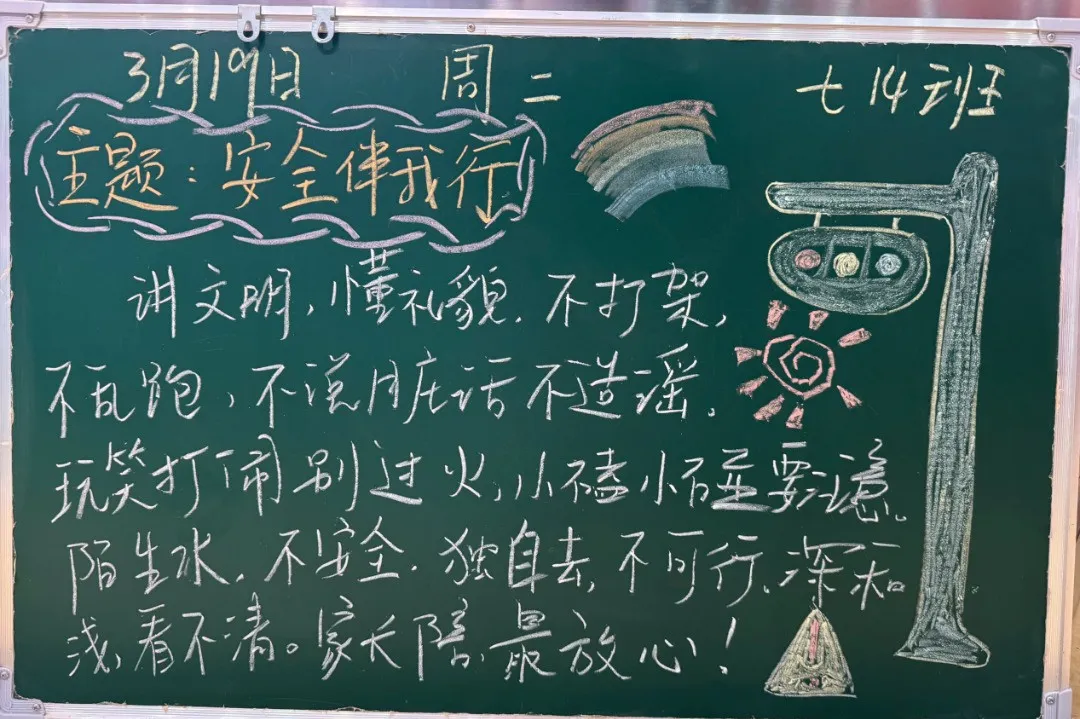 3月19日 周二 七14班
主题：安全伴我行
讲文明，懂礼貌．不打架，
不乱跑，不说脏话不造谣．
玩笑打闹别过火，小磕小碰要注意。
陌生水，不安全．独自去，不可行、深和
浅，看不清。家长陪、最放心！